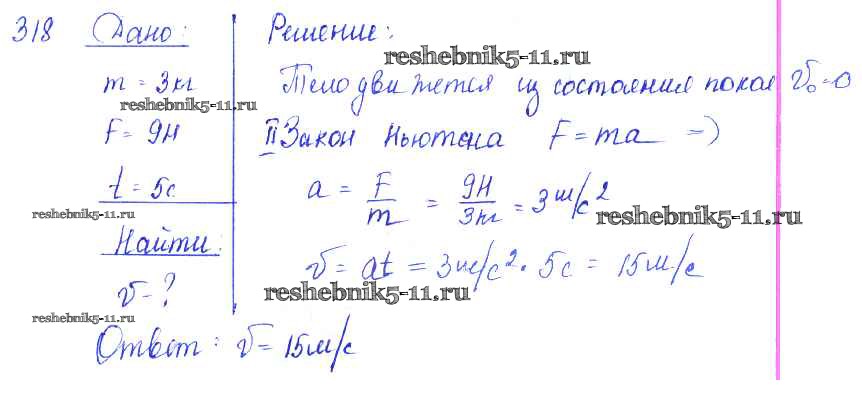 318 Дано: Решение:
reshebnik5-11.ru
m = 3кг Тело движется из состояния покоя v₀=0
reshebnik5-11.ru
F = 9Н II Закон Ньютона F = ma =>
t = 5с a = F/m = 9Н/3кг = 3м/с²
reshebnik5-11.ru reshebnik5-11.ru
Найти:
v = at = 3м/с² · 5с = 15м/с
v - ? reshebnik5-11.ru
reshebnik5-11.ru
Ответ: v = 15м/с